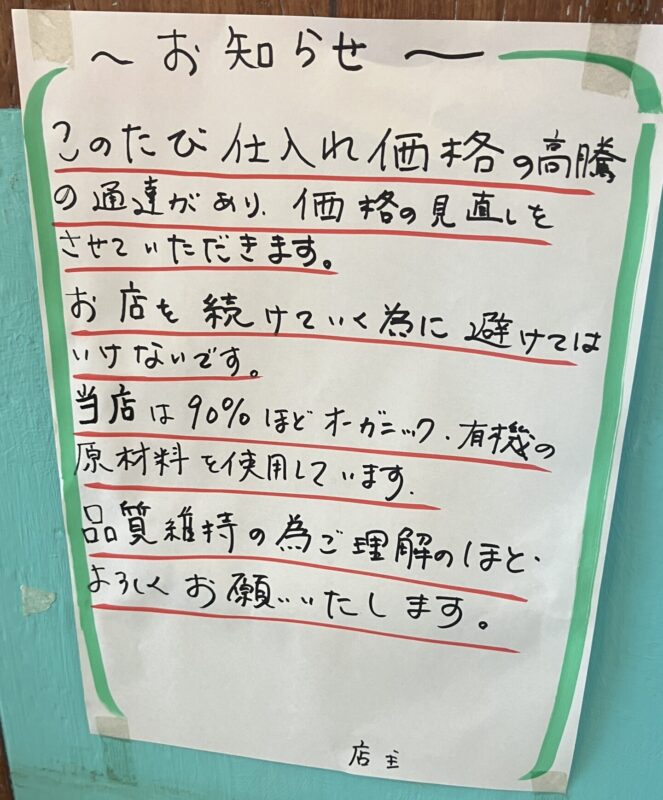 ～お知らせ～
このたび仕入れ価格の高騰
の通達があり、価格の見直しを
させていただきます。
お店を続けていく為に避けては
いけないです。
当店は90%ほどオーガニック、有機の
原材料を使用しています。
品質維持の為ご理解のほど、
よろしくお願いいたします。
店主